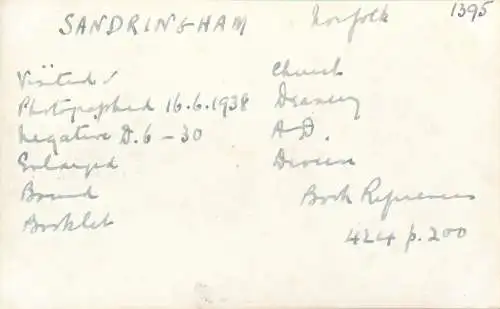 SANDRINGHAM Norfolk 1395
Visited ✓
Photographed 16.6.1938
Negative D.6-30
Enlarged
Bound
Booklet
Church
Deanery
A.D.
Diocese
Book References
424 p.200